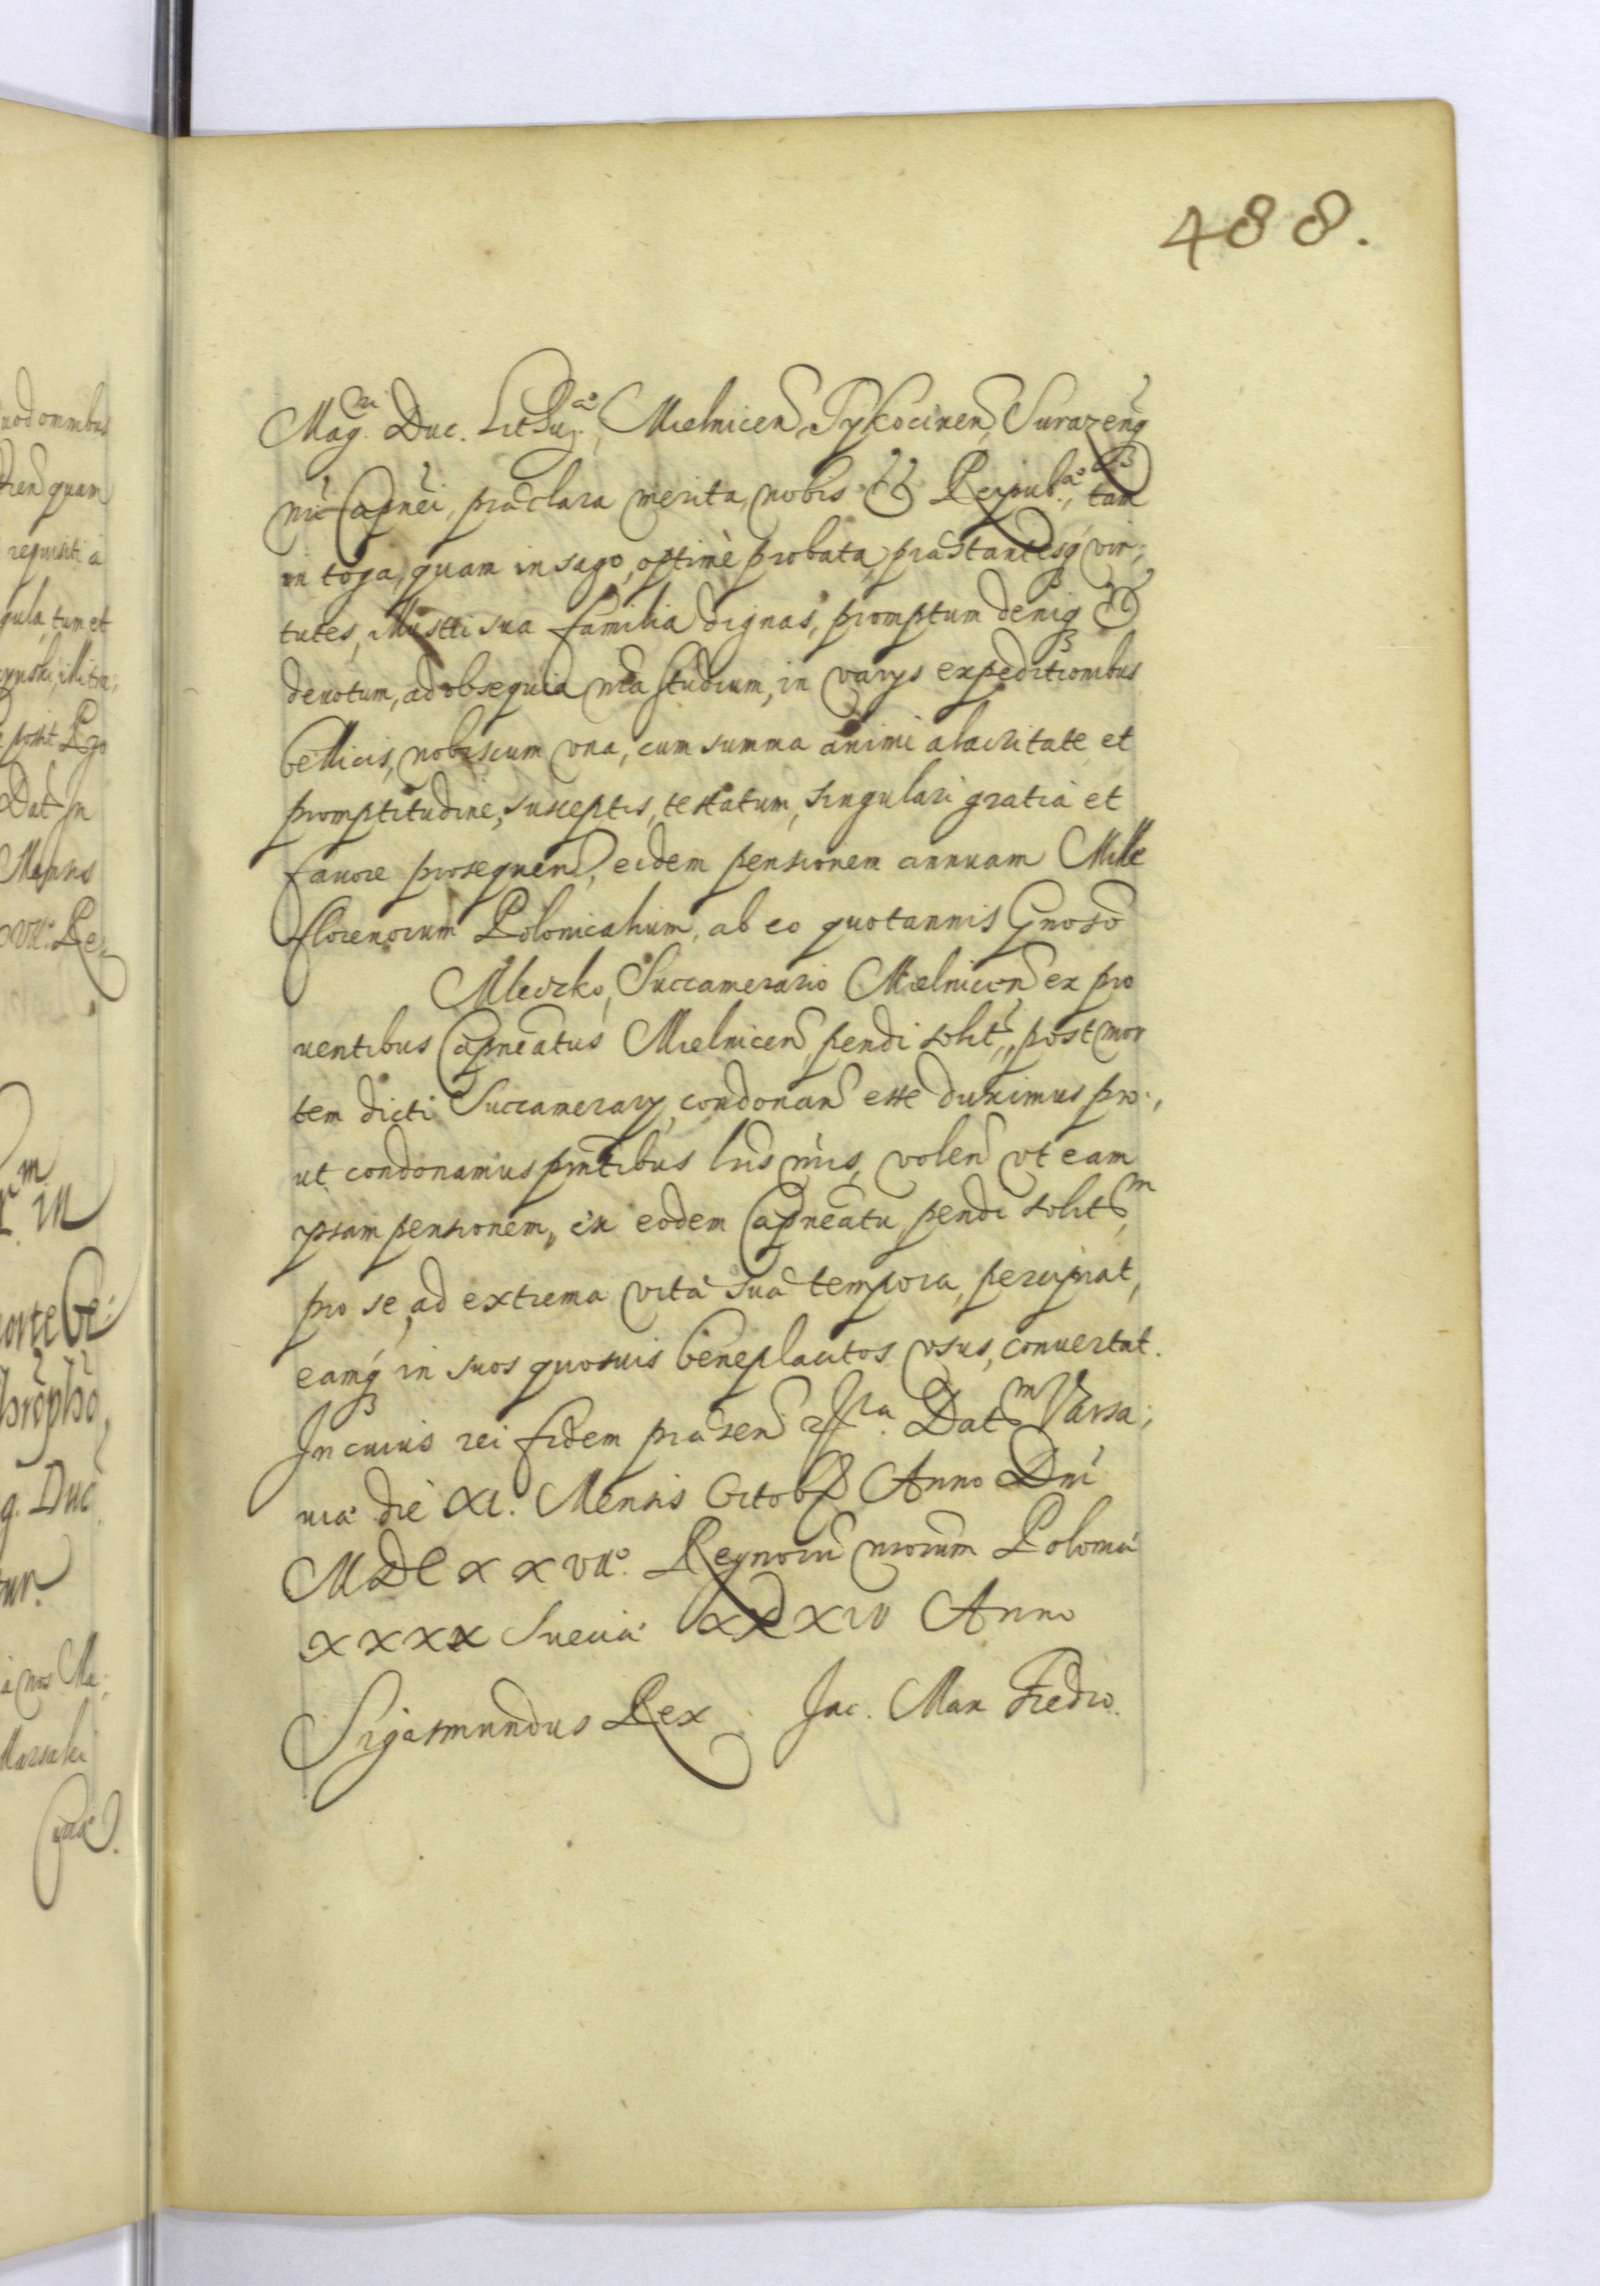 488.
Mag.ni Duc. Lithu.ae, Mielnicen, Tykocinen, Surazenq
nri Capnei, præclara merita, nobis et Reipub.æ, tam
in toga, quam in sago, optimè probata, præstantesq vir:
tutes, Illustri sua familia dignas, promptum deniq et
deuotum, ad obsequia nra studium, in varys expeditionibus
bellicis, nobiscum vna, cum summa animi alacritate et
promptitudine, susceptis, testatum, singulari gratia et
fauore prosequen, eidem pensionem annuam Mille
florenorum Polonicalium, ab eo quotannis Gnoso
Mleczko, Succamerario Mielnicen ex pro
uentibus Capneatus Mielnicen, pendi solit, post mor
tem dicti Succamerary, condonan esse duximus pro:
ut condonamus pntibus lris nris, volen vt eam
ipsam pensionem, ex eodem Capneatu pendi solitam,
pro se, ad extrema vitæ suæ tempora, percipiat,
eamq in suos quosuis beneplacitos vsus, conuertat.
In cuius rei fidem præsen etc.ra Datm Varsa:
uiæ die XI. Mensis Octobr Anno Dni
MDCXXVII.o Regnorū nrorum Poloniæ
XXXX Sueciæ XXXIV Anno
Sigismundus Rex Jac. Max Fredro.
uod omnibus
quam
requisiti a
gula, tum et
Dat In
Manus
Rex
m
in
morte Ge:
g. Duc
a nos Ma: